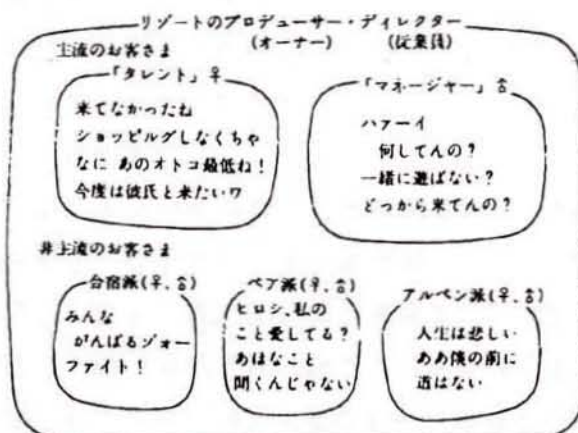 リゾートのプロデューサー・ディレクター
(オーナー) (従業員)
主流のお客さま
「タレント」♀
来てなかったね
ショッピルグしなくちゃ
なに あのオトコ最低ね!
今度は彼氏と来たいワ
「マネージャー」♂
ハァーイ
何してんの?
一緒に遊ばない?
どっから来てんの?
非主流のお客さま
合宿派(♀、♂)
みんな
がんばるジォー
ファイト!
ペア派(♀、♂)
ヒロシ、私の
こと愛してる?
あはなこと
聞くんじゃない
アルペン派(♀、♂)
人生は悲しい
ああ僕の前に
道はない